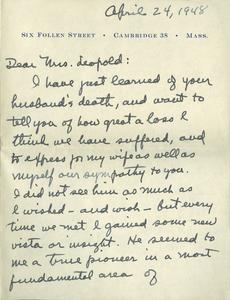 April 24, 1948
SIX FOLLEN STREET • CAMBRIDGE 38 • MASS.
Dear Mrs. Leopold:
I have just learned of your
husband's death, and want to
tell you of how great a loss I
think we have suffered, and
to express for my wife as well as
myself our sympathy to you.
I did not see him as much as
I wished - and wish - but every
time we met I gained some new
vista or insight. He seemed to
me a true pioneer in a most
fundamental area of